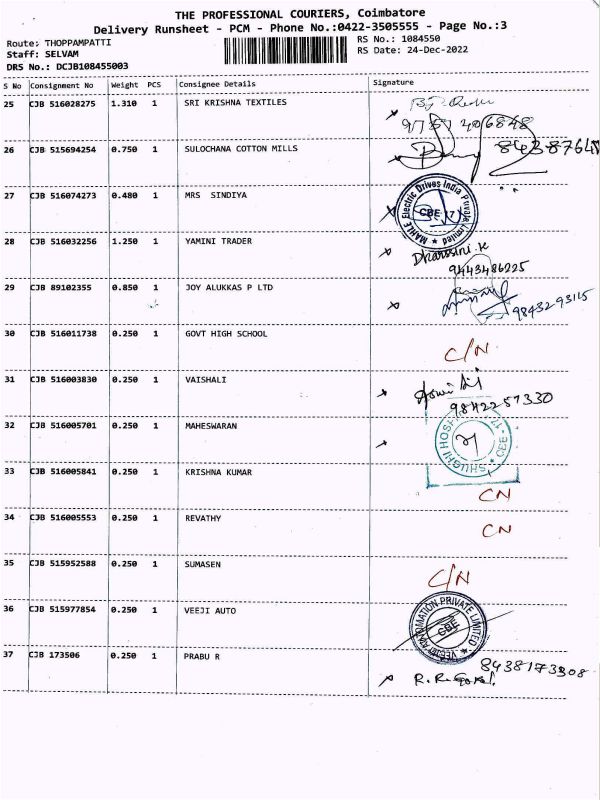 THE PROFESSIONAL COURIERS, Coimbatore
Delivery Runsheet - PCM - Phone No.:0422-3505555 - Page No.:3
Route: THOPPAMPATTI RS No.: 1084550
Staff: SELVAM RS Date: 24-Dec-2022
DRS No.: DCJB108455003
S No Consignment No Weight PCS Consignee Details Signature
25 CJB 516028275 1.310 1 SRI KRISHNA TEXTILES
26 CJB 515694254 0.750 1 SULOCHANA COTTON MILLS
27 CJB 516074273 0.480 1 MRS SINDIYA MAHLE Electric Drives India Private Limited CBE 17
28 CJB 516032256 1.250 1 YAMINI TRADER Dharssini.k
9443486225
29 CJB 89102355 0.850 1 JOY ALUKKAS P LTD 9843293115
30 CJB 516011738 0.250 1 GOVT HIGH SCHOOL C/N
31 CJB 516003830 0.250 1 VAISHALI
9842257330
32 CJB 516005701 0.250 1 MAHESWARAN
33 CJB 516005841 0.250 1 KRISHNA KUMAR CN
34 CJB 516005553 0.250 1 REVATHY CN
35 CJB 515952588 0.250 1 SUMASEN C/N
36 CJB 515977854 0.250 1 VEEJI AUTO PRIVATE LIMITED CBE
37 CJB 173506 0.250 1 PRABU R 8438173308